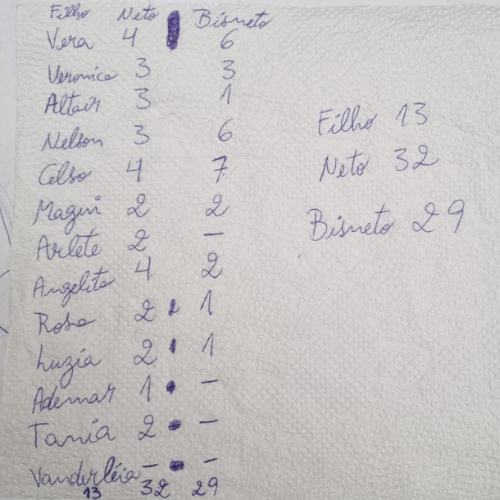 Filho Neto Bisneto
Vera 4 6
Veronica 3 3
Altair 3 1
Nelson 3 6
Celso 4 7
Magui 2 2
Arlete 2 —
Angelita 4 2
Rosa 2 1
Luzia 2 1
Ademar 1 —
Tania 2 —
Vanderléia — —
13 32 29
Filho 13
Neto 32
Bisneto 29